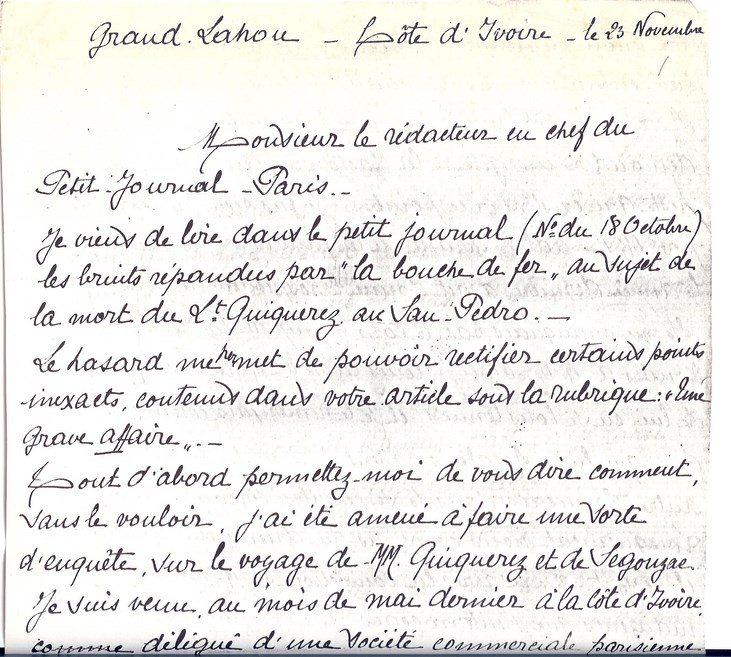 Grand-Lahou - Côte d'Ivoire - le 23 Novembre
Monsieur le rédacteur en chef du
Petit-Journal - Paris.-
Je viens de lire dans le petit journal (No du 18 Octobre)
les bruits répandus par "la bouche de fer" au sujet de
la mort du Lt Quiquerez au San-Pedro.-
Le hasard me permet de pouvoir rectifier certains points
inexacts, contenus dans votre article sous la rubrique: "Une
grave affaire".-
Tout d'abord permettez-moi de vous dire comment,
sans le vouloir, j'ai été amené à faire une sorte
d'enquête, sur le voyage de MM. Quiquerez et de Segonzac
Je suis venu, au mois de mai dernier à la côte d'Ivoire,
comme délégué d'une société commerciale parisienne